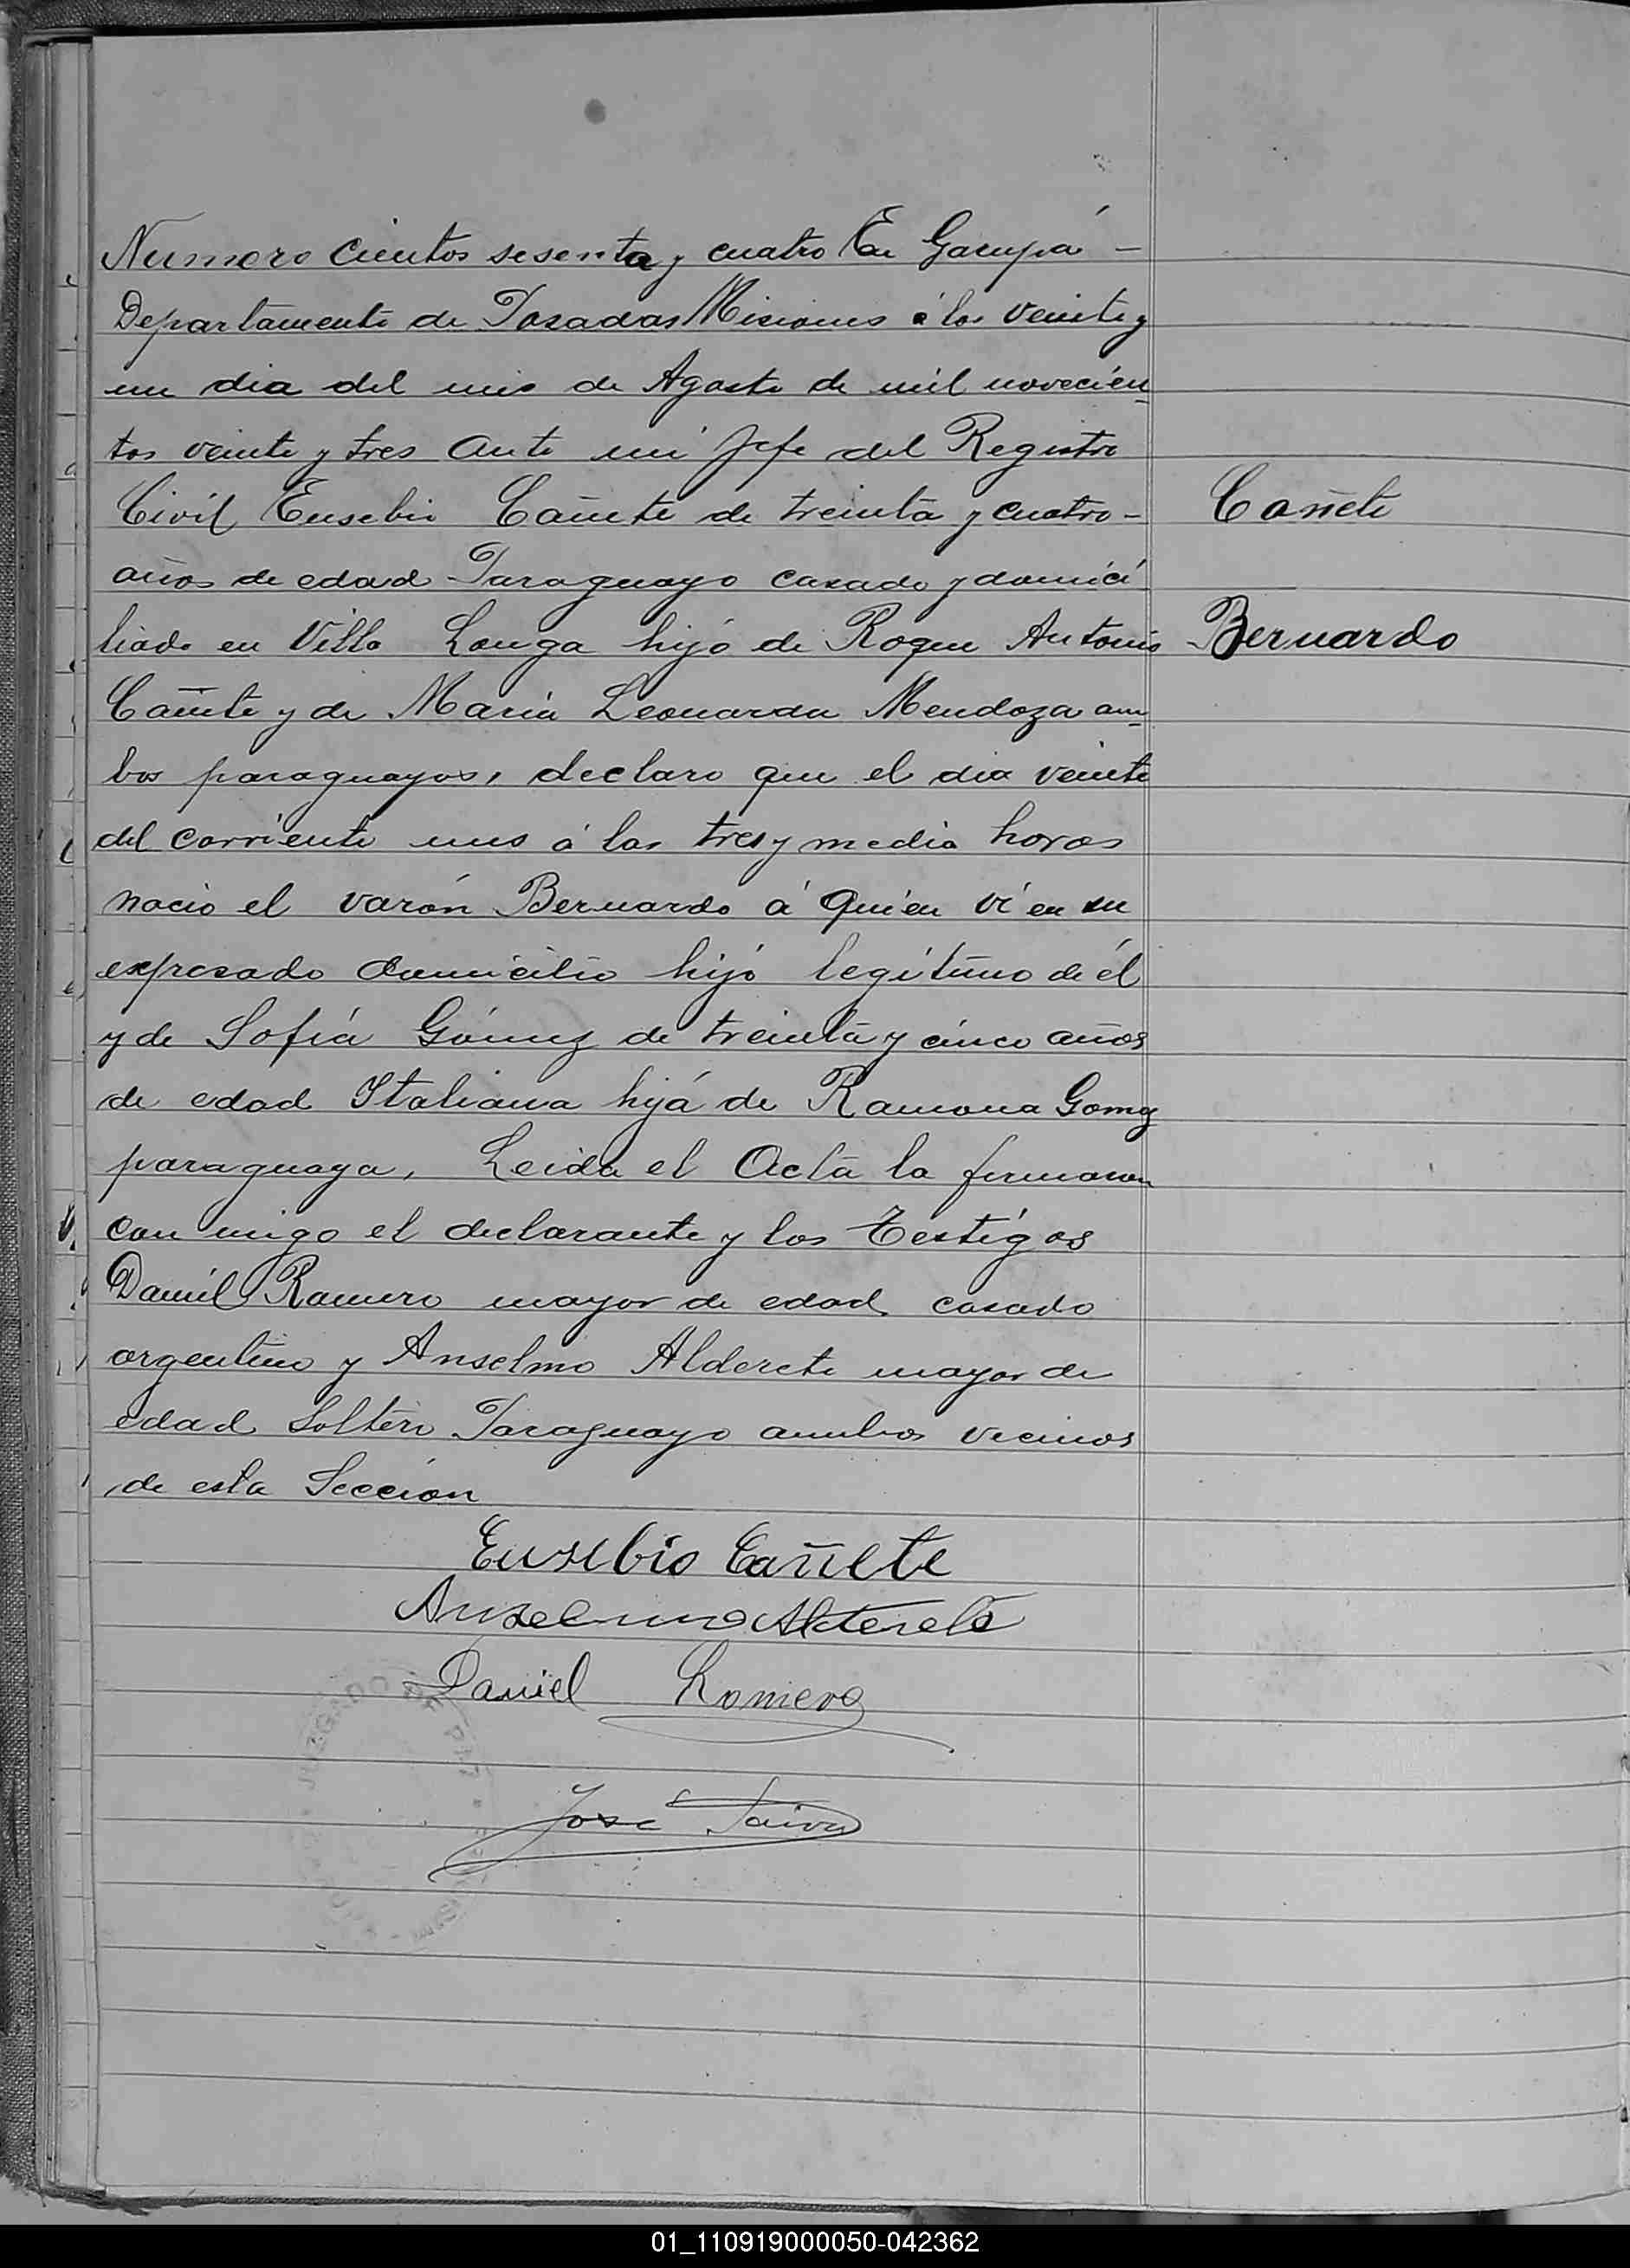 Numero cientos sesenta y cuatro En Garupá -
Departamento de Posadas Misiones á los veinte y
un dia del mes de Agosto de mil novecien-
tos veinte y tres ante mi Jefe del Registro
Civil Eusebio Cañete de treinta y cuatro -
Cañete
años de edad Paraguayo casado y domici
liado en Villa Longa hijo de Roque Antonio
Bernardo
Cañete y de Maria Leonarda Mendoza am-
bos paraguayos, declaro que el dia veinte
del corriente mes á las tres y media horas
nació el varón Bernardo á quien ví en su
expresado domicilio hijo legítimo de él
y de Sofía Gómez de treinta y cinco años
de edad Italiana hija de Ramona Gomez
paraguaya, Leida el Acta la firmaron
con migo el declarante y los Testigos
Daniel Romero mayor de edad casado
argentino y Anselmo Alderete mayor de
edad Soltero Paraguayo ambos vecinos
de esta Sección
Eusebio Cañete
Anselmo Alderete
Daniel Romero
José Paiva
JUZGADO DE PAZ
01_110919000050-042362